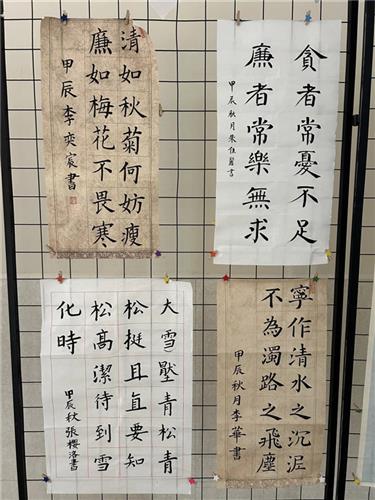 清如秋菊何妨瘦
廉如梅花不畏寒
甲辰李奕宸書
貪者常憂不足
廉者常樂無求
甲辰秋月朱佳書
大雪壓青松青
松挺且直要知
松髙潔待到雪
化時
甲辰秋張櫻洛書
寧作清水之沉泥
不為濁路之飛塵
甲辰秋月李華書